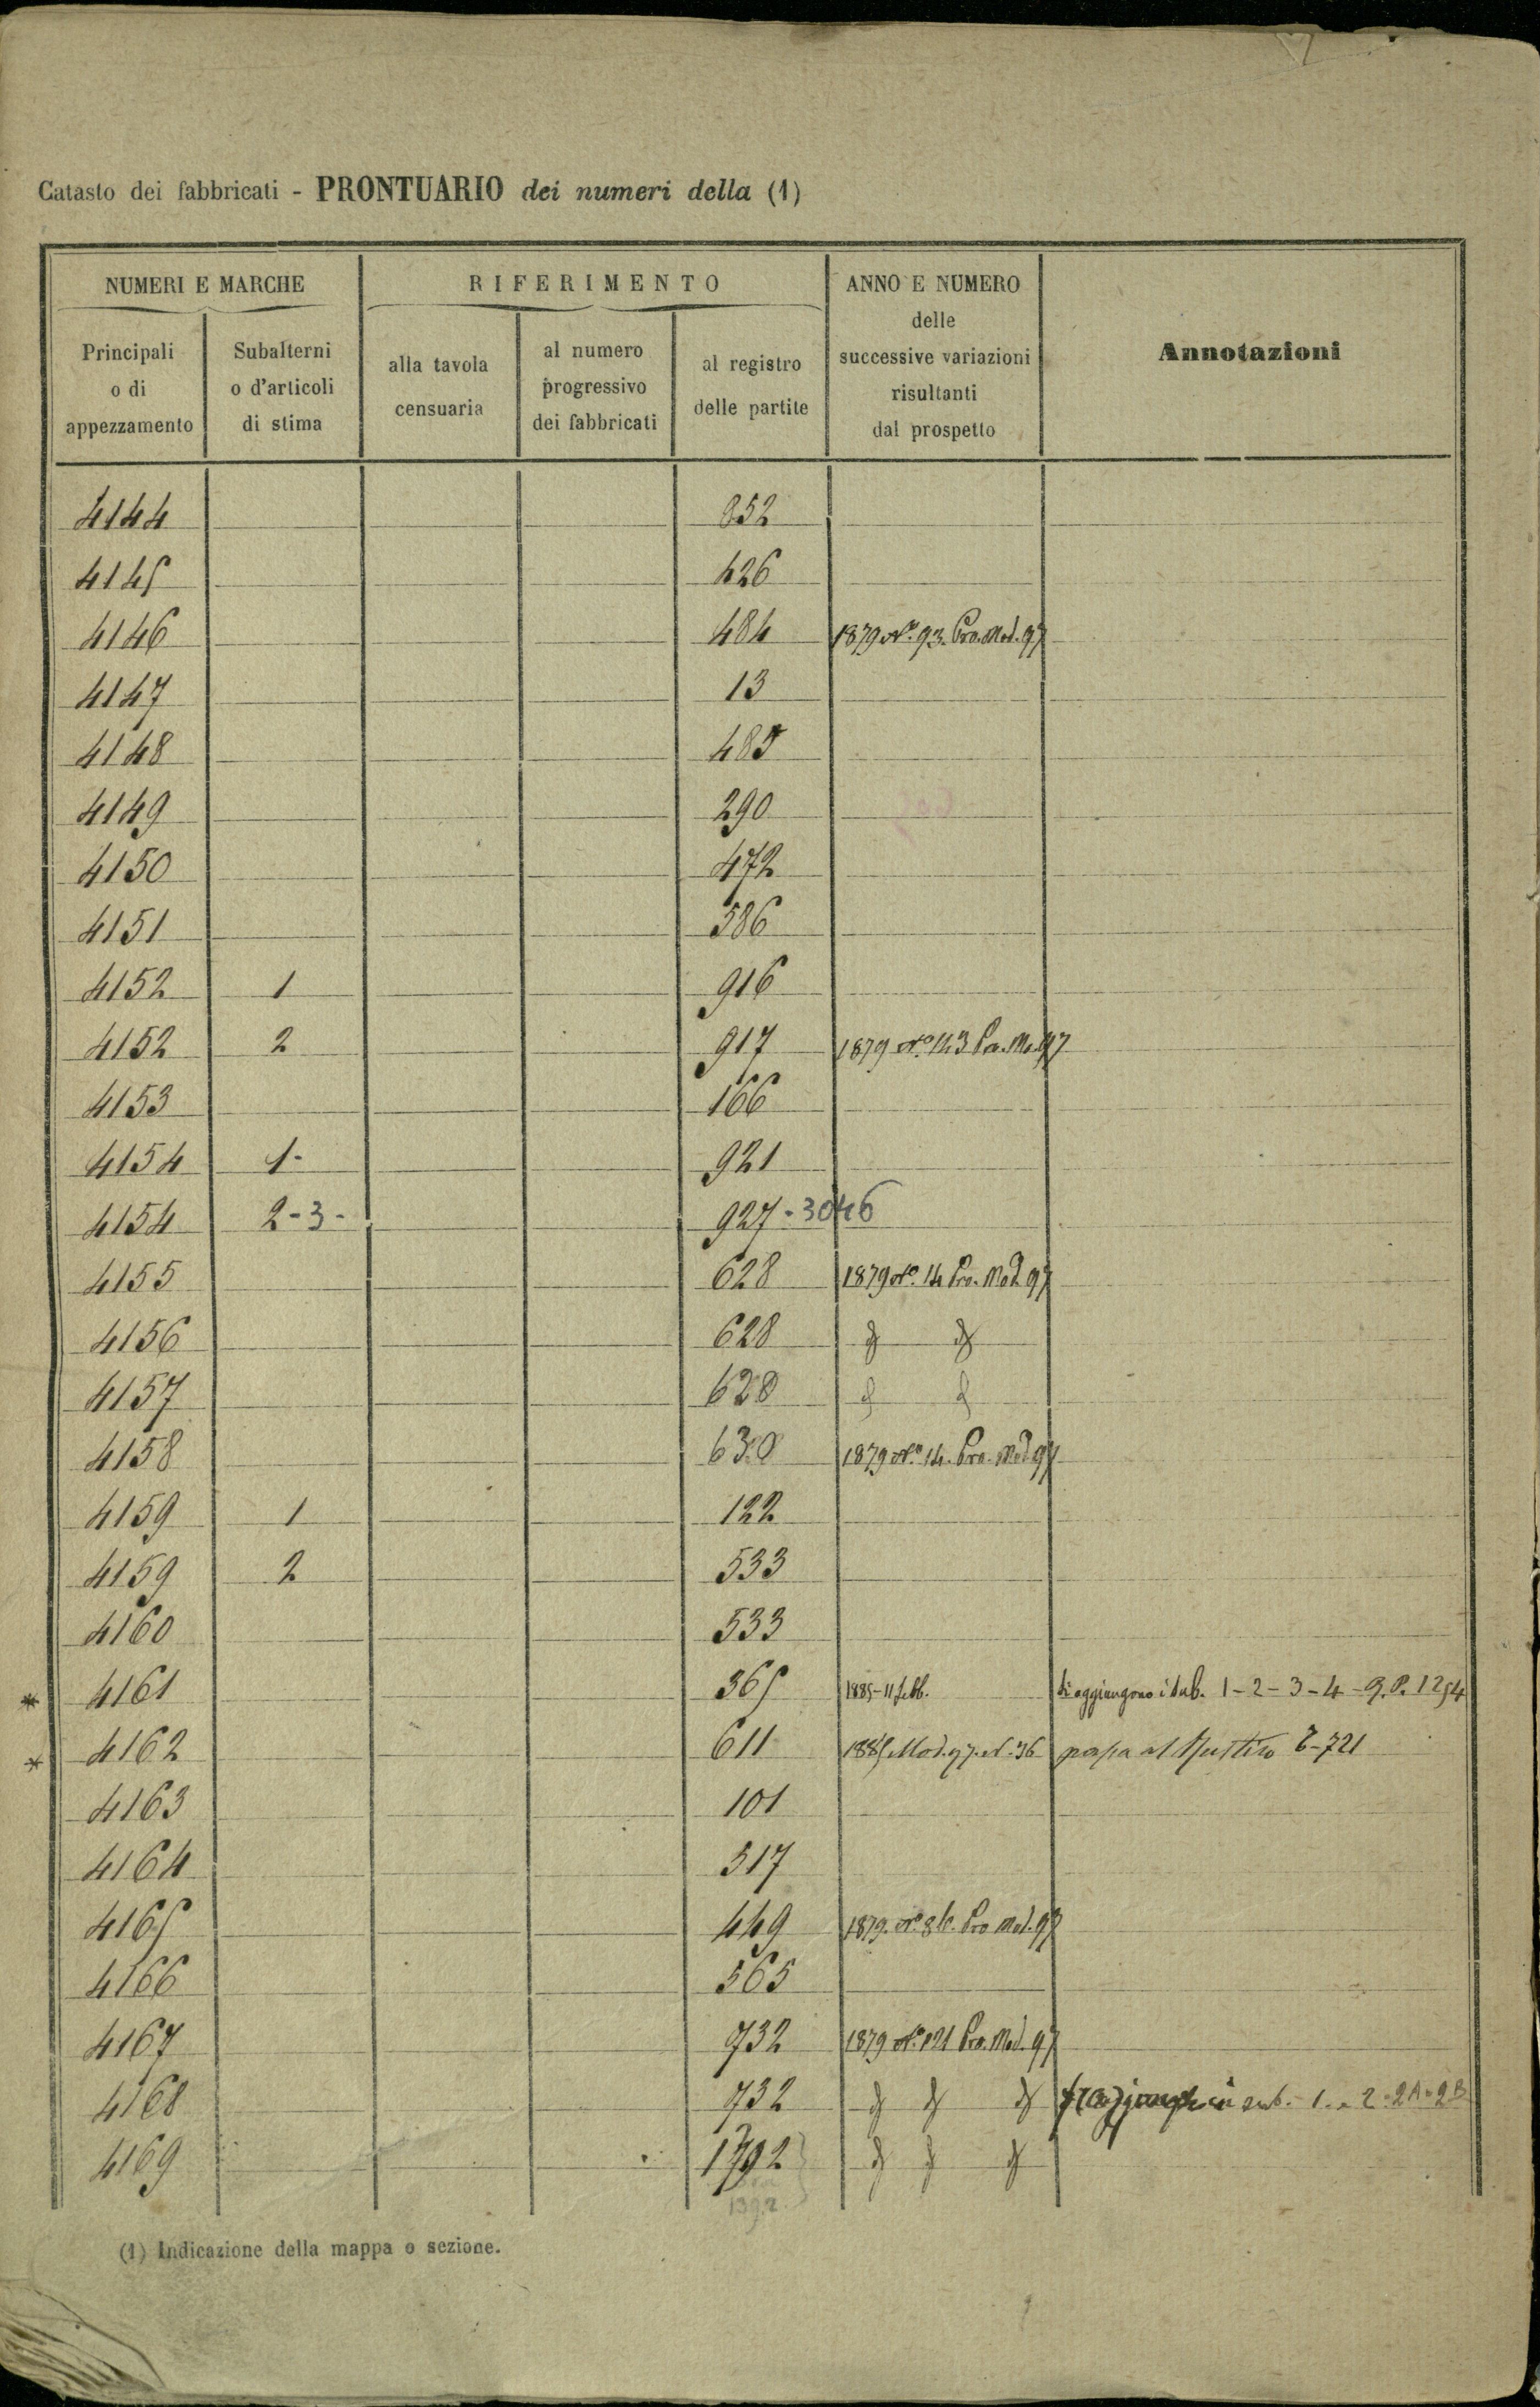 Catasto dei fabbricati - PRONTUARIO dei numeri della (1)
NUMERI E MARCHE
RIFERIMENTO
ANNO E NUMERO
delle
successive variazioni
risultanti
dal prospetto
Annotazioni
Principali
o di
appezzamento
Subalterni
o d'articoli
di stima
alla tavola
censuaria
al numero
progressivo
dei fabbricati
al registro
delle partite
4144 852
4145 426
4146 484 1879 No. 93. Pro. Mod. 97
4147 13
4148 485
4149 290
4150 472
4151 586
4152 1 916
4152 2 917 1879 No. 143 Pro. Mo. 97
4153 166
4154 1- 921
4154 2-3- 927-3046
4155 628 1879 No. 14 Pro. Mod. 97
4156 628
4157 628
4158 630 1879 No. 14. Pro. Mod. 97
4159 1 122
4159 2 533
4160 533
* 4161 365 1885-11 febb. Si aggiungono i sub. 1-2-3-4- P. 1254
* 4162 611 1885 Mod. 97. N. 36 passa al 721
4163 101
4164 517
4165 449 1879. No. Pro Mod. 97
4166 565
4167 732 1879 No. 121 Pro. Mod. 97
4168 732 sub. - 1. - 2 - 2A - 2B
4169 1392
(1) Indicazione della mappa o sezione.